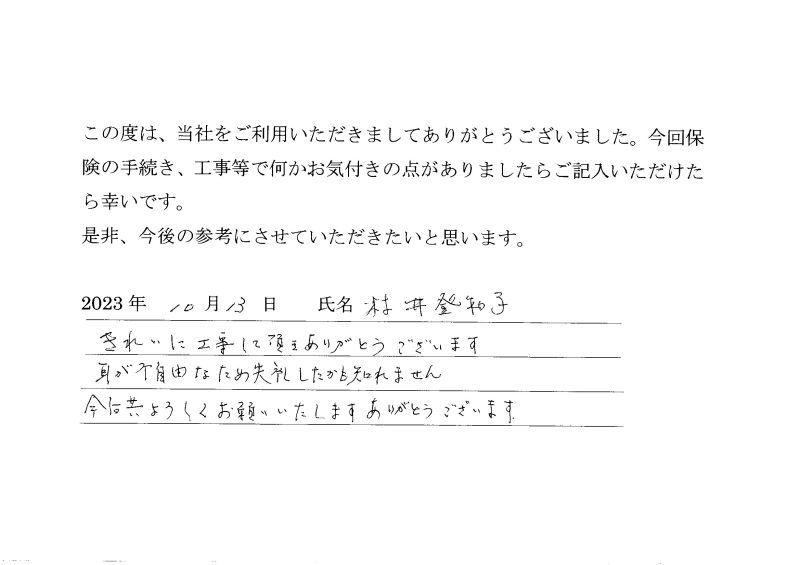 この度は、当社をご利用いただきましてありがとうございました。今回保
険の手続き、工事等で何かお気付きの点がありましたらご記入いただけた
ら幸いです。
是非、今後の参考にさせていただきたいと思います。
2023 年 10 月 13 日 氏名 村井登知子
きれいに工事して頂きありがとうございます
耳が不自由なため失礼したかも知れません
今后共よろしくお願いいたしますありがとうございます